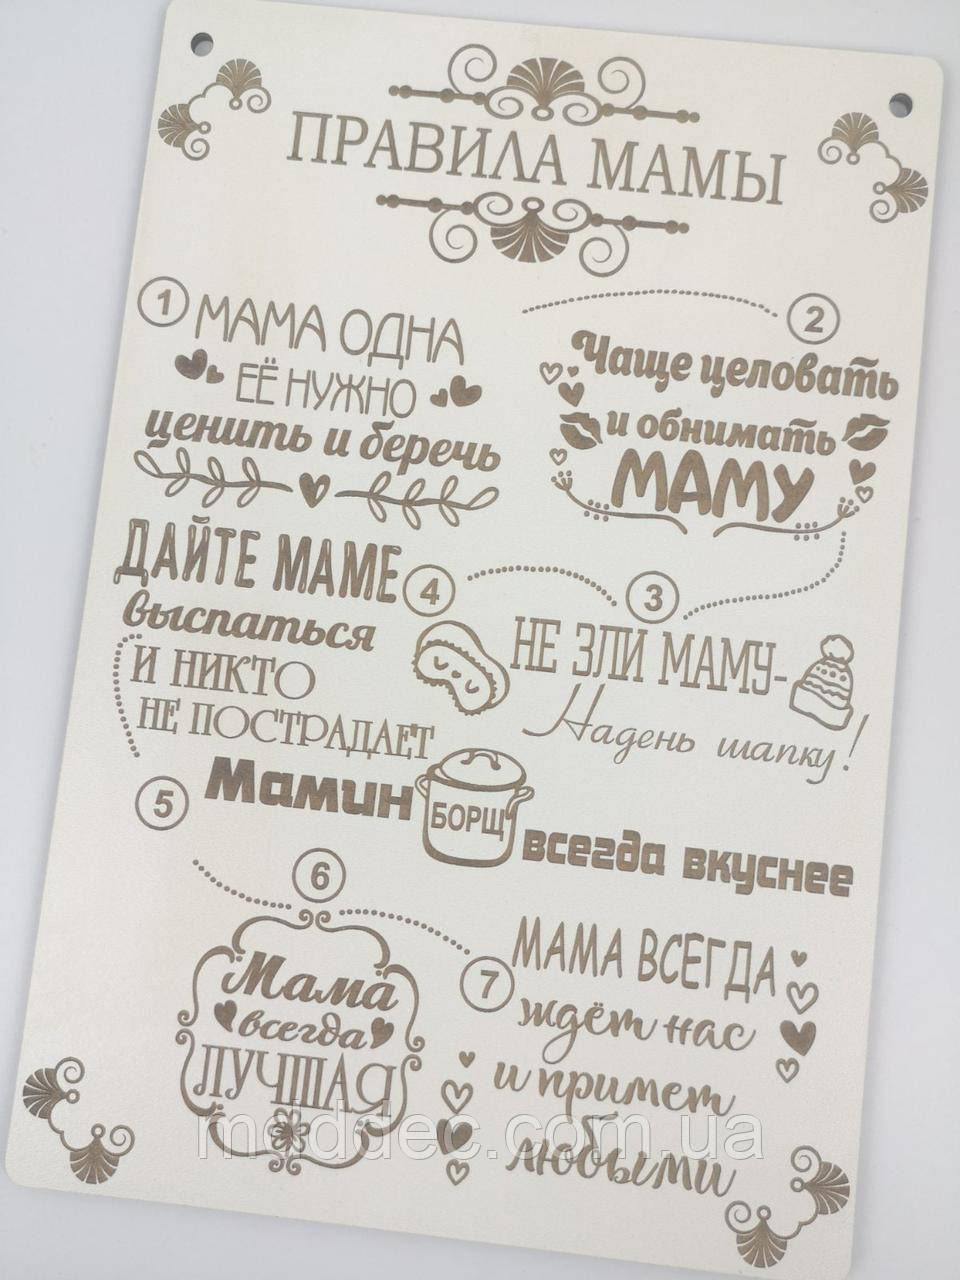 ПРАВИЛА МАМЫ
1
МАМА ОДНА
ЕЁ НУЖНО
ценить и беречь
2
Чаще целовать
и обнимать
МАМУ
3
НЕ ЗЛИ МАМУ-
Надень шапку!
4
ДАЙТЕ МАМЕ
выспаться
И НИКТО
НЕ ПОСТРАДАЕТ
5
Мамин
БОРЩ
всегда вкуснее
6
Мама
всегда
ЛУЧШАЯ
7
МАМА ВСЕГДА
ждёт нас
и примет
любыми
maddec.com.ua